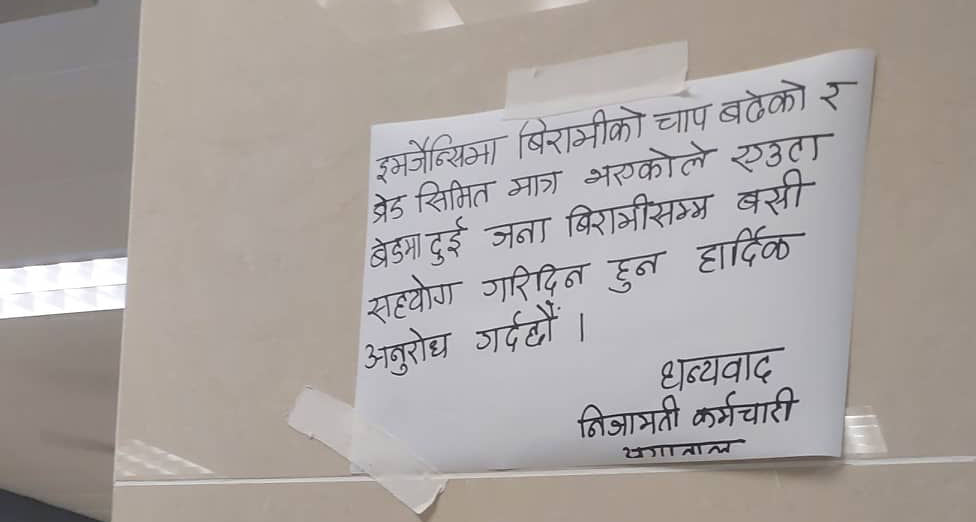 इमर्जेन्सिमा बिरामीको चाप बढेको र
बेड सिमित मात्र भएकोले एउटा
बेडमा दुई जना बिरामीसम्म बसी
सहयोग गरिदिन हुन हार्दिक
अनुरोध गर्दछौं ।
धन्यवाद
निजामती कर्मचारी